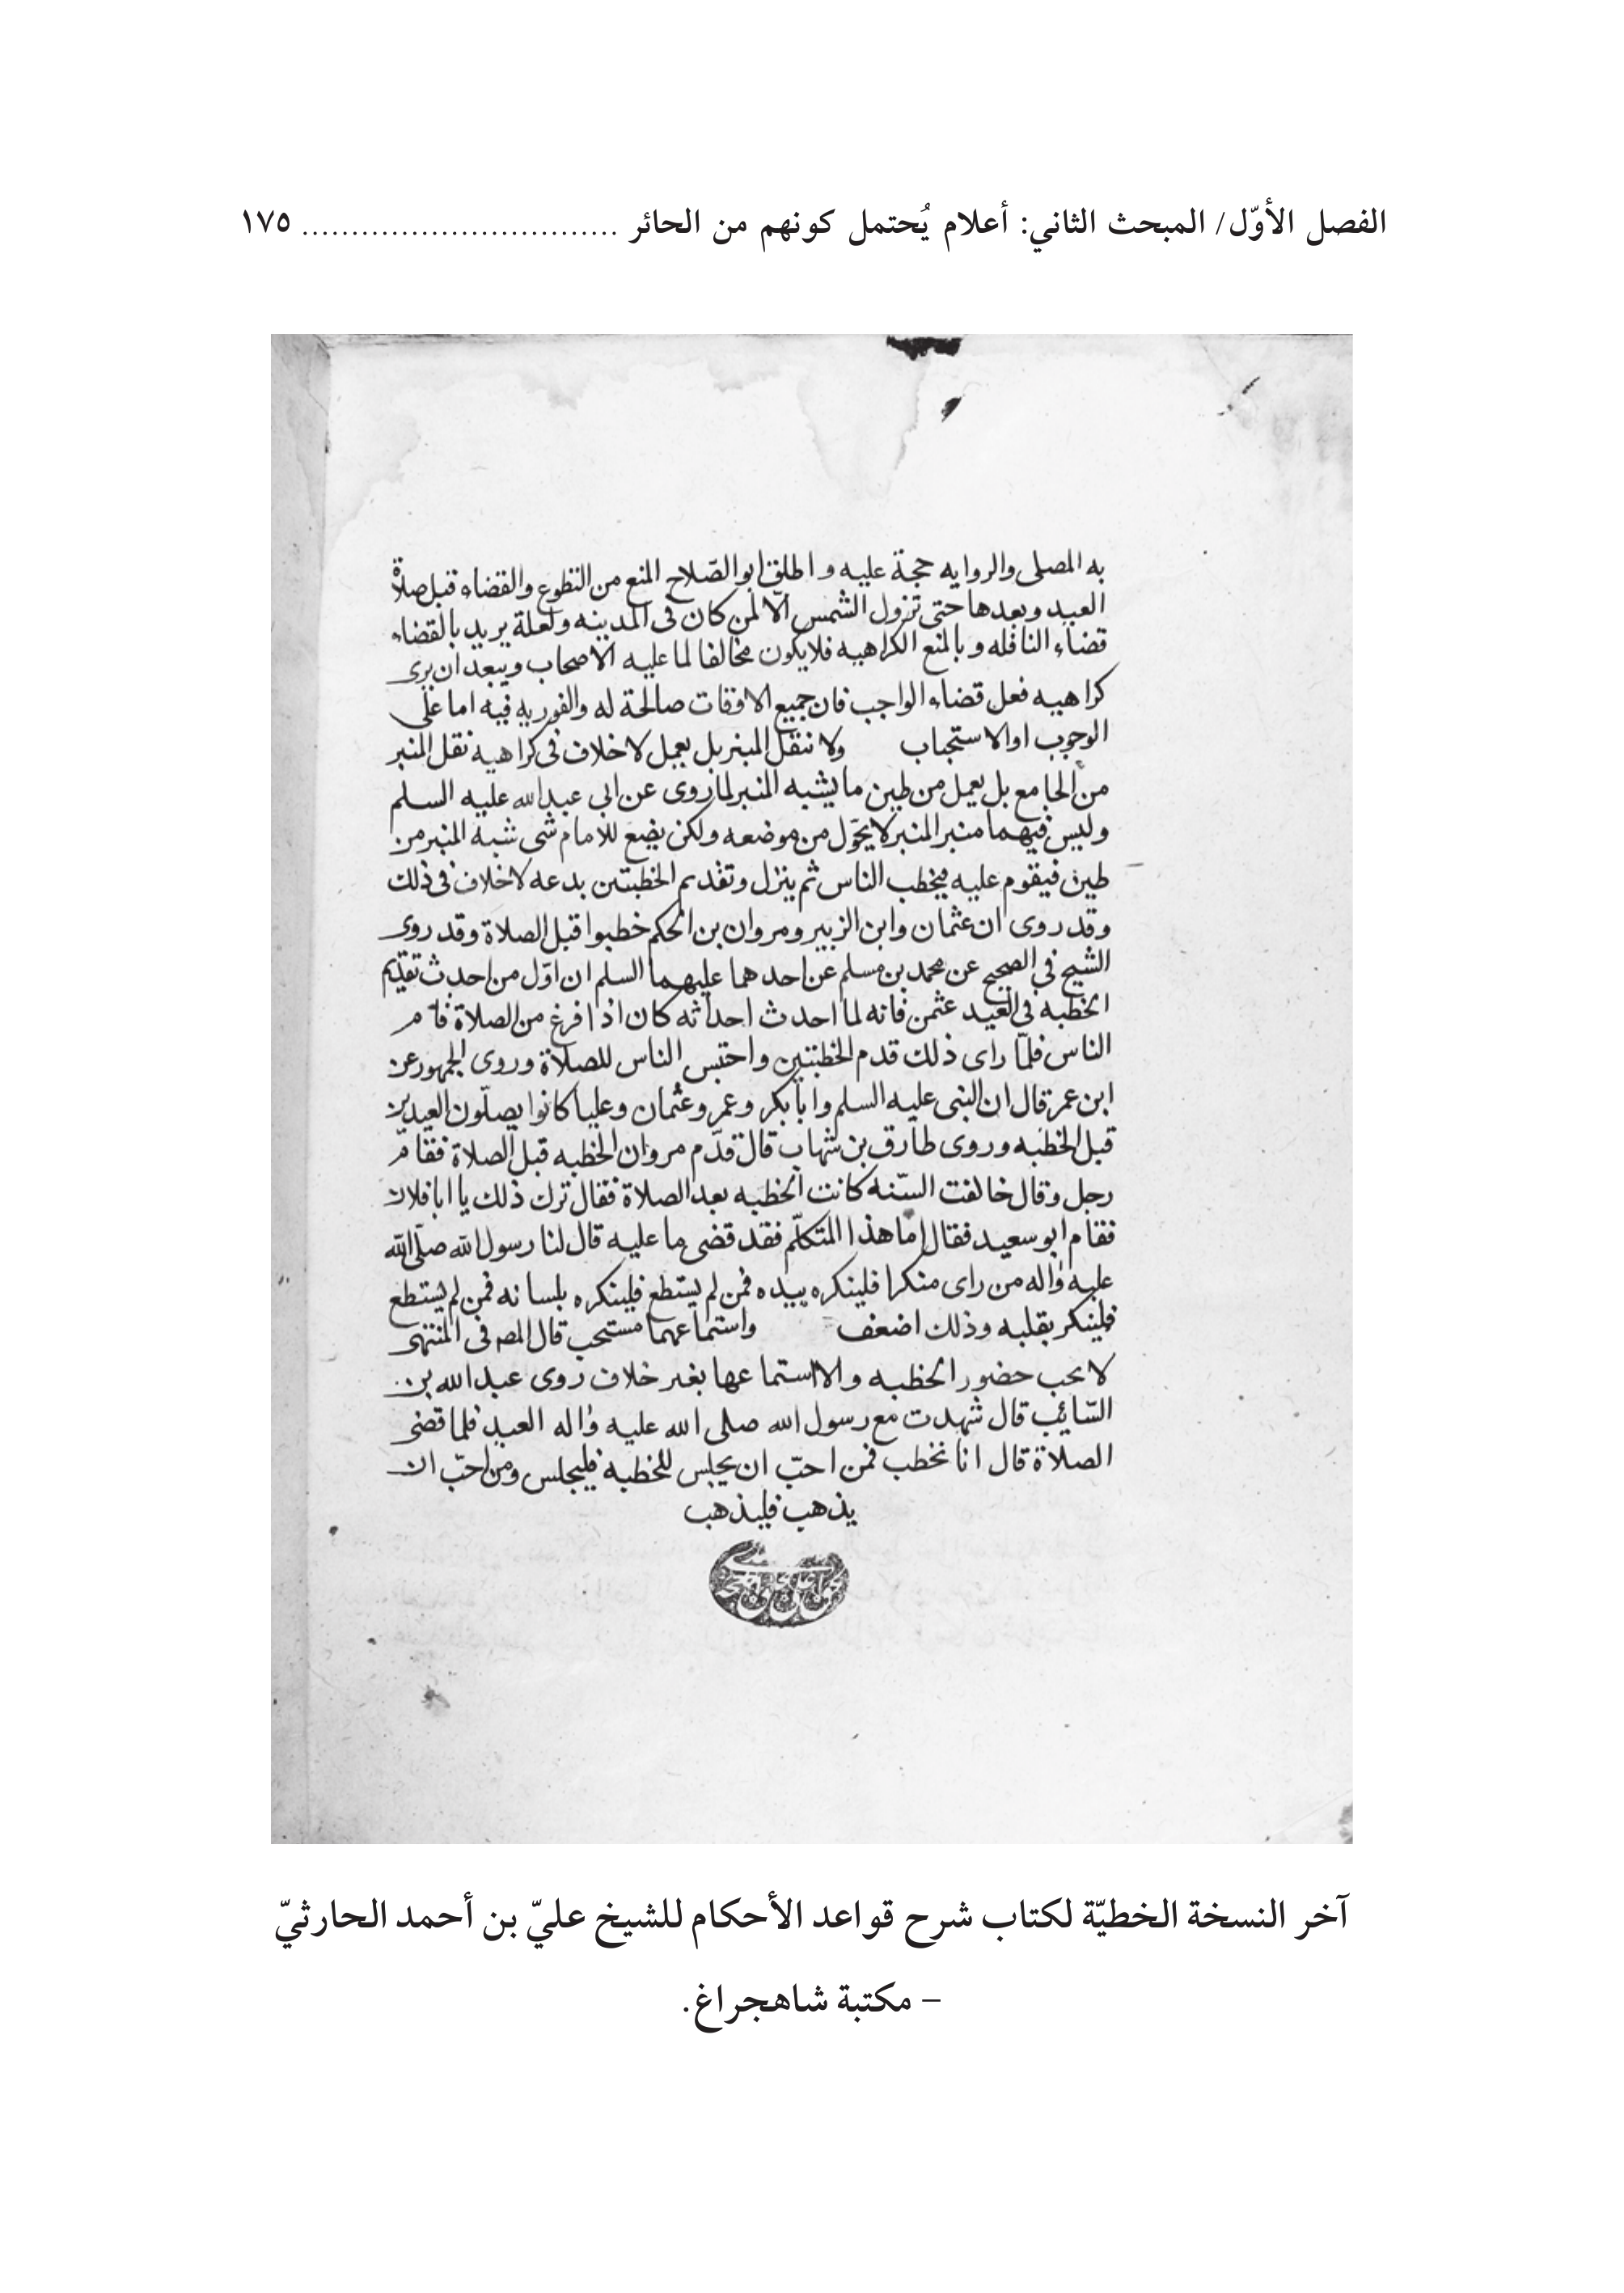 الفصل الأوّل/ المبحث الثاني: أعلام يُحتمل كونهم من الحائر ................................ ١٧٥
به المصلى والروايه حجة عليه واطلق ابو الصّلاح المنع من التطوع والقضاء قبل صلاة
العيد وبعدها حتى تزول الشمس الّا لمن كان فى المدينه ولعلة يريد بالقضاء
قضاء النافله وبالمنع الكراهيه فلا يكون مخالفا لما عليه الاصحاب ويبعد ان يرى
كراهيه فعل قضاء الواجب فان جميع الاوقات صالحة له والفوريه فيه اما على
الوجوب او الاستحباب ولا ننقل المنبر بل يعمل لا خلاف فى كراهيه نقل المنبر
من الجامع بل يعمل من طين ما يشبه المنبر لما روى عن ابى عبد الله عليه السلم
وليس فيهما منبر المنبر لا يحوّل من موضعه ولكن يضع للامام شى شبه المنبر من
طين فيقوم عليه فيخطب الناس ثم ينزل وتقديم الخطبتين بدعه لا خلاف فى ذلك
وقد روى ان عثمان وابن الزبير ومروان بن الحكم خطبوا قبل الصلاة وقد روى
الشيخ في الصحيح عن محمد بن مسلم عن احدهما عليهما السلم ان اوّل من احدث تقديم
الخطبه فى العيد عثمن فانه لما احدث احداثه كان اذا فرغ من الصلاة قام
الناس فلمّا راى ذلك قدم الخطبتين واحتبس الناس للصلاة وروى الجمهور عن
ابن عمر قال ان النبى عليه السلم وابا بكر وعمر وعثمان وعليا كانوا يصلّون العيدين
قبل الخطبه وروى طارق بن شهاب قال قدّم مروان الخطبه قبل الصلاة فقام
رجل وقال خالفت السّنه كانت الخطبه بعد الصلاة فقال ترك ذلك يا ابا فلان
فقام ابو سعيد فقال اما هذا المتكلّم فقد قضى ما عليه قال لنا رسول الله صلّى الله
عليه واله من راى منكرا فلينكره بيده فمن لم يستطع فلينكره بلسانه فمن لم يستطع
فلينكر بقلبه وذلك اضعف واستماعهما مستحب قال المصه فى المنتهى
لا يجب حضور الخطبه ولا استماعها بغير خلاف روى عبد الله بن
السّائب قال شهدت مع رسول الله صلى الله عليه واله العيد فلما قضى
الصلاة قال انا نخطب فمن احبّ ان يجلس للخطبه فليجلس ومن احبّ ان
يذهب فليذهب
آخر النسخة الخطيّة لكتاب شرح قواعد الأحكام للشيخ عليّ بن أحمد الحارثيّ
– مكتبة شاهجراغ.